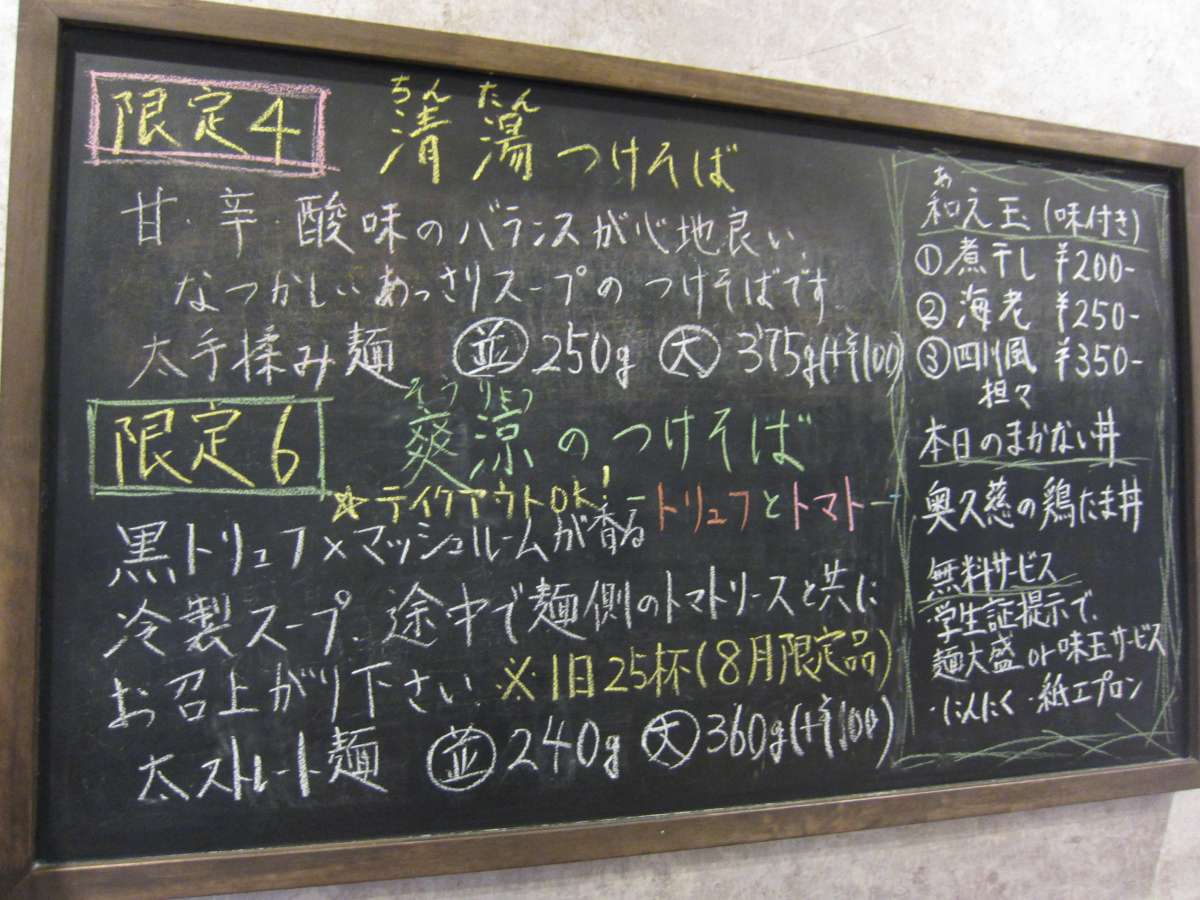 限定4
ちんたん
清湯つけそば
甘・辛・酸味のバランスが心地良い、
なつかしいあっさりスープのつけそばです。
太手揉み麺 並250g 大375g(+¥100)
限定6
そうりょう
爽涼のつけそば
☆テイクアウトOK! －トリュフとトマト－
黒トリュフ×マッシュルームが香る
冷製スープ、途中で麺側のトマトソースと共に
お召上がり下さい。※1日25杯(8月限定品)
太ストレート麺 並240g 大360g(+¥100)
あ
和え玉(味付き)
①煮干し ¥200-
②海老 ¥250-
③四川風 ¥350-
担々
本日のまかない丼
奥久慈の鶏たま丼
無料サービス
・学生証提示で、
麺大盛or味玉サービス
・にんにく・紙エプロン